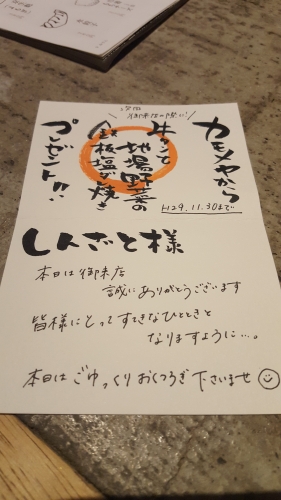 次回
御来店の際に!
カモメヤから
牛タンと
地場野菜の
鉄板塩だれ焼き
プレゼント!!
H29.11.30まで
しんざと様
本日は御来店
誠にありがとうございます
皆様にとってすてきなひとときと
なりますように…。
本日はごゆっくりおくつろぎ下さいませ